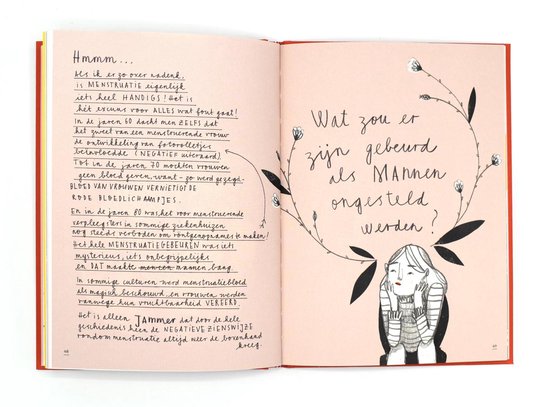 Hmmm...
Als ik er zo over nadenk,
is MENSTRUATIE eigenlijk
iets heel HANDIGS! Het is
hét excuus voor ALLES wat fout gaat!
In de jaren 60 dacht men ZELFS dat
het zweet van een menstruerende vrouw
de ontwikkeling van fotorolletjes
beïnvloedde (NEGATIEF uiteraard).
Tot in de jaren 70 mochten vrouwen
geen bloed geven, want - zo werd gezegd -
BLOED VAN VROUWEN VERNIETIGDE
RODE BLOEDLICHAAMPJES.
En in de jaren 80 was het voor menstruerende
verpleegsters in sommige ziekenhuizen
nog steeds verboden om röntgenopnames te maken!
Het hele MENSTRUATIEGEBEUREN was iets
mysterieus, iets onbegrijpelijks
en DAT maakte mensen mannen bang.
In sommige culturen werd menstruatiebloed
als magisch beschouwd en vrouwen werden
vanwege hun vruchtbaarheid VEREERD.
Het is alleen JAMMER dat door de hele
geschiedenis heen de NEGATIEVE ZIENSWIJZE
rondom menstruatie altijd weer de bovenhand
kreeg.
68
Wat zou er
zijn gebeurd
als MANNEN
ongesteld
werden?
69